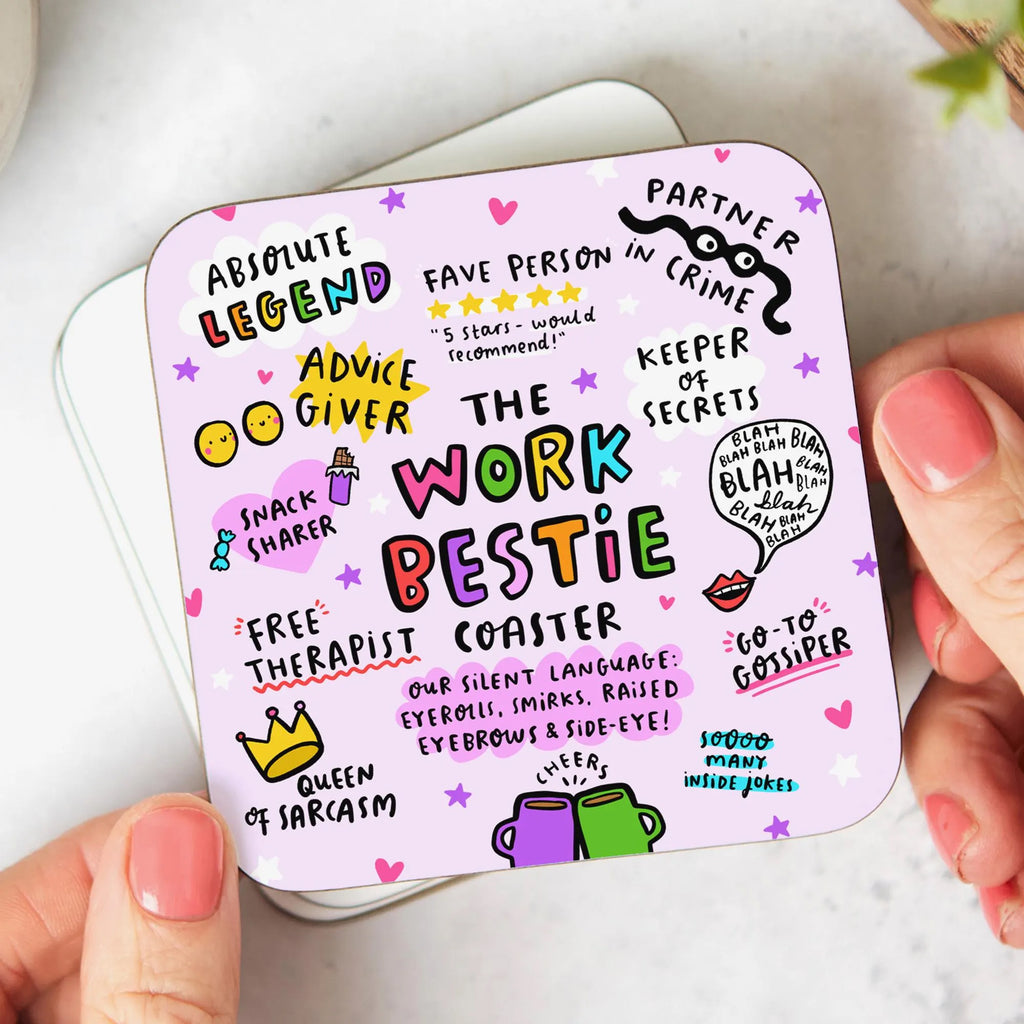 ABSOLUTE
LEGEND
FAVE PERSON
"5 stars - would
recommend!"
PARTNER
IN CRIME
ADVICE
GIVER
KEEPER
OF
SECRETS
THE
WORK
BESTiE
COASTER
SNACK
SHARER
BLAH
BLAH BLAH BLAH
BLAH BLAH
BLAH
blah
BLAH BLAH
BLAH
FREE
THERAPiST
GO-TO
GOSSiPER
OUR SiLENT LANGUAGE:
EYEROLLS, SMIRKS, RAiSED
EYEBROWS & SiDE-EYE!
QUEEN
OF SARCASM
SOOOO
MANY
INSIDE JOKES
CHEERS